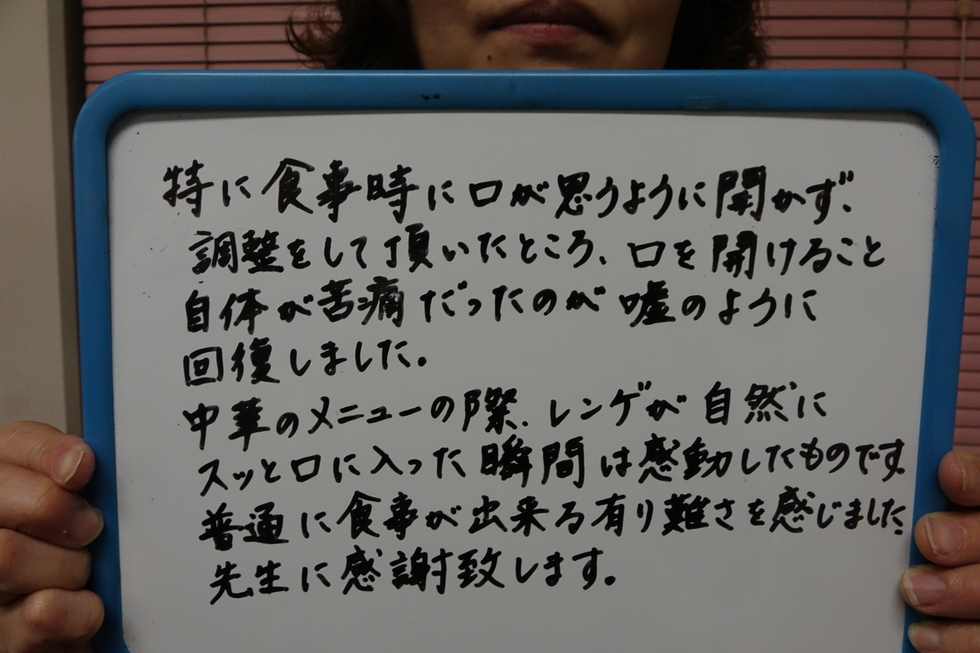 特に食事時に口が思うように開かず、
調整をして頂いたところ、口を開けること
自体が苦痛だったのが嘘のように
回復しました。
中華のメニューの際、レンゲが自然に
スッと口に入った瞬間は感動したものです。
普通に食事が出来る有り難さを感じました。
先生に感謝致します。